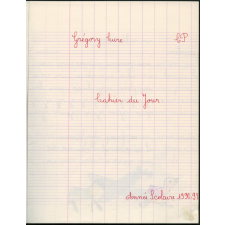 Grégory CP
Cahier du Jour
Année Scolaire 1990-91